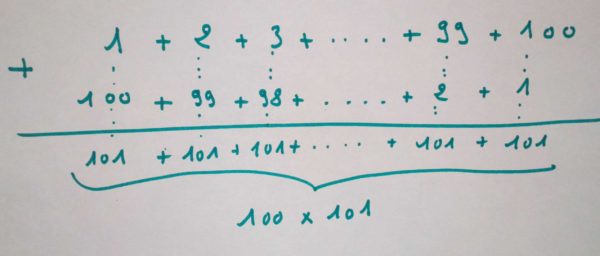 1 + 2 + 3 + .... + 99 + 100
+
100 + 99 + 98 + .... + 2 + 1
101 + 101 + 101 + .... + 101 + 101
100 x 101